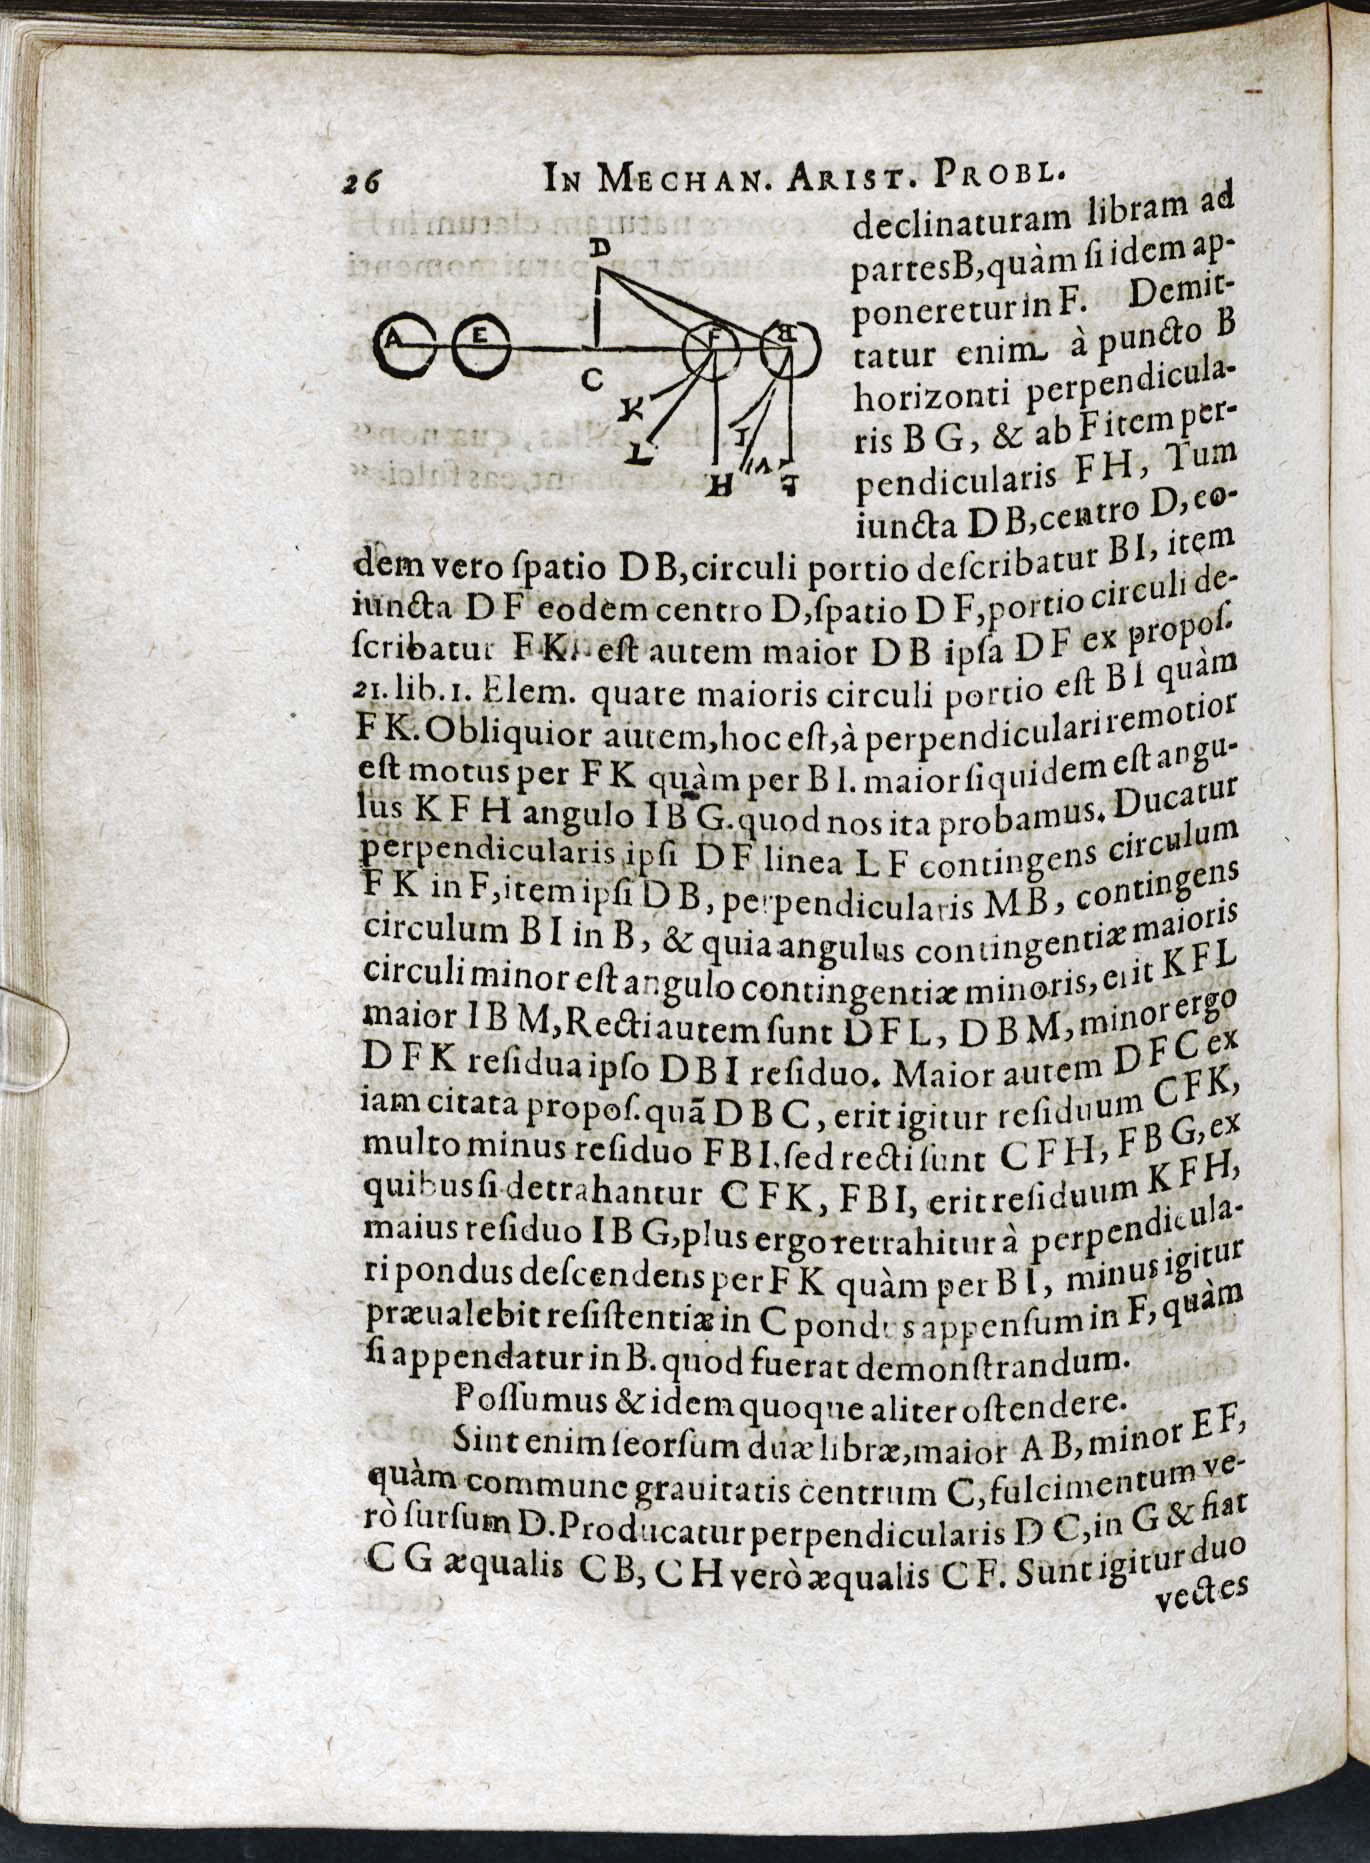 26 IN MECHAN. ARIST. PROBL.
D
A E F B
C
K
L
I
H
declinaturam libram ad
partes B, quàm si idem ap-
poneretur in F. Demit-
tatur enim à puncto B
horizonti perpendicula-
ris B G, & ab F item per-
pendicularis F H, Tum
iuncta D B, centro D, eo-
dem vero spatio D B, circuli portio describatur B I, item
iuncta D F eodem centro D, spatio D F, portio circuli de-
scribatur F K. est autem maior D B ipsa D F ex propos.
21. lib. 1. Elem. quare maioris circuli portio est B I quàm
F K. Obliquior autem, hoc est, à perpendiculari remotior
est motus per F K quàm per B I. maior siquidem est angu-
lus K F H angulo I B G. quod nos ita probamus. Ducatur
perpendicularis ipsi D F linea L F contingens circulum
F K in F, item ipsi D B, perpendicularis M B, contingens
circulum B I in B, & quia angulus contingentiæ maioris
circuli minor est angulo contingentiæ minoris, erit K F L
maior I B M, Recti autem sunt D F L, D B M, minor ergo
D F K residua ipso D B I residuo. Maior autem D F C ex
iam citata propos. quã D B C, erit igitur residuum C F K,
multo minus residuo F B I. sed recti sunt C F H, F B G, ex
quibus si detrahantur C F K, F B I, erit residuum K F H,
maius residuo I B G, plus ergo retrahitur à perpendicula-
ri pondus descendens per F K quàm per B I, minus igitur
præualebit resistentiæ in C pondus appensum in F, quàm
si appendatur in B. quod fuerat demonstrandum.
Possumus & idem quoque aliter ostendere.
Sint enim seorsum duæ libræ, maior A B, minor E F,
quàm commune grauitatis centrum C, fulcimentum ve-
rò sursum D. Producatur perpendicularis D C, in G & fiat
C G æqualis C B, C H verò æqualis C F. Sunt igitur duo
vectes